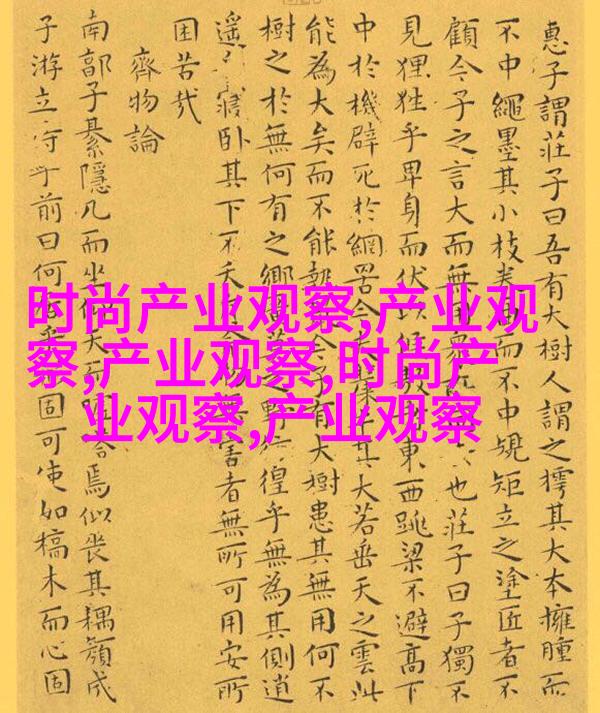 惠子謂莊子曰吾有大樹人謂之樗其大本擁腫而
不中繩墨其小枝卷曲而不中規矩立之塗匠者不
顧今子之言大而無用衆所也莊子曰子獨不
見狸狌乎卑身而伏以候敖者東西跳梁不避高下
中於機辟死於網罟今夫牛其大若垂天之雲此
能為大矣而不能執鼠今子有大樹患其無用何不
樹之於無何有之鄉廣莫之野彷徨乎無為其側逍
遙寢臥其下不夭斤物無害者無所可用安所
困苦哉
齊物論
南郭子綦隱几而坐仰天而嗒焉似喪其耦顏成
子游立侍乎前曰何居乎固可使如槁木而心固
时尚产业观察,产业观
察,产业观察,时尚产
业观察,产业观察